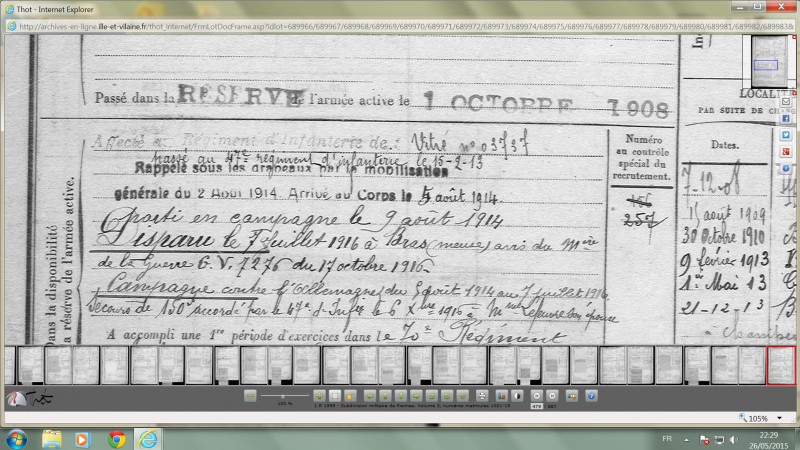 Thot - Internet Explorer
http://archives-en-ligne.ille-et-vilaine.fr/thot_internet/FrmLotDocFrame.asp?idlot=689966/689967/689968/689969/689970/689971/689972/689973/689974/689975/689976/689977/689978/689979/689980/689981/689982/689983&
Passé dans la RÉSERVE de l'armée active le 1 OCTOBRE 1908
Affecté au Régiment d'Infanterie de : Vitré n° 03737
passé au 47e régiment d'infanterie le 15-2-13
Rappelé sous les drapeaux par la mobilisation
générale du 2 Août 1914. Arrivé au Corps le 5 août 1914.
parti en campagne le 9 août 1914
Disparu le 7 juillet 1916 à Bras (meuse) avis du Mère
de la Guerre G. V. 7276 du 17 octobre 1916.
Campagne contre l'Allemagne du 5 août 1914 au 7 juillet 1916
Secours de 150f accordé par le 47e d'Infie le 6 Xbre 1916 à Mme épouse
A accompli une 1re période d'exercices dans le 70e Régiment
Dans la disponibilité
a réserve de l'armée active.
Numéro
au contrôle
spécial du
recrutement.
257
LOCALI
PAR SUITE DE CHANG
Dates.
7-12-08
15 août 1909
30 Octobre 1910
9 février 1913
1er Mai 13
21-12-13
100 %
1 R 1999 - Subdivision militaire de Rennes. Volume 3, numéros matricules 1001-15
479
887
105%
FR
22:29
26/05/2015